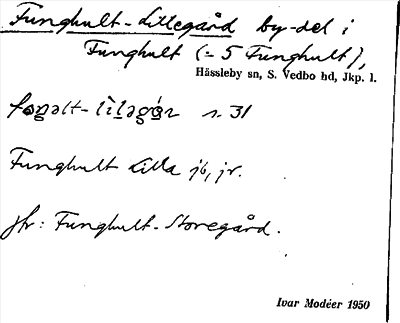 Funghult-Lillegård by-del i
Funghult (= 5 Funghult),
Hässleby sn, S. Vedbo hd, Jkp. l.
n. 31
Funghult Lilla jb, jr.
jfr: Funghult-Storegård.
Ivar Modéer 1950